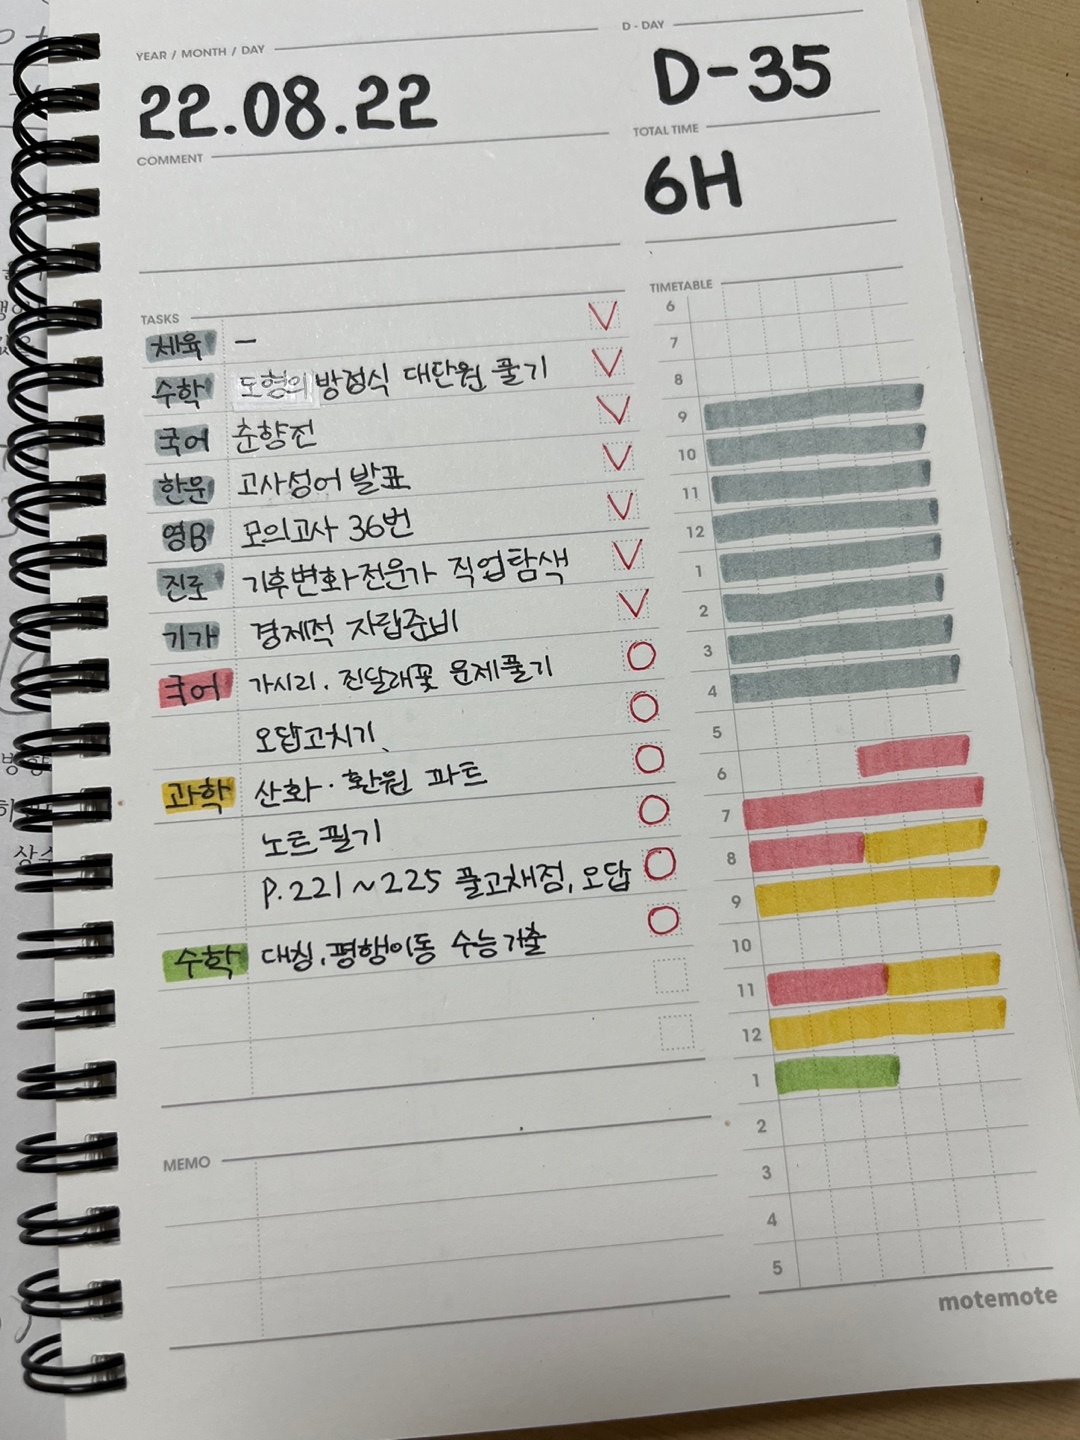 YEAR / MONTH / DAY
22.08.22
D - DAY
D-35
COMMENT
TOTAL TIME
6H
TASKS
체육 —
수학 도형의 방정식 대단원 풀기
국어 춘향전
한문 고사성어 발표
영B 모의고사 36번
진로 기후변화전문가 직업탐색
기가 경제적 자립준비
국어 가시리. 진달래꽃 문제풀기
오답고치기
과학 산화·환원 파트
노트필기
P.221~225 풀고채점, 오답
수학 대칭, 평행이동 수능기출
MEMO
TIMETABLE
6
7
8
9
10
11
12
1
2
3
4
5
6
7
8
9
10
11
12
1
2
3
4
5
motemote